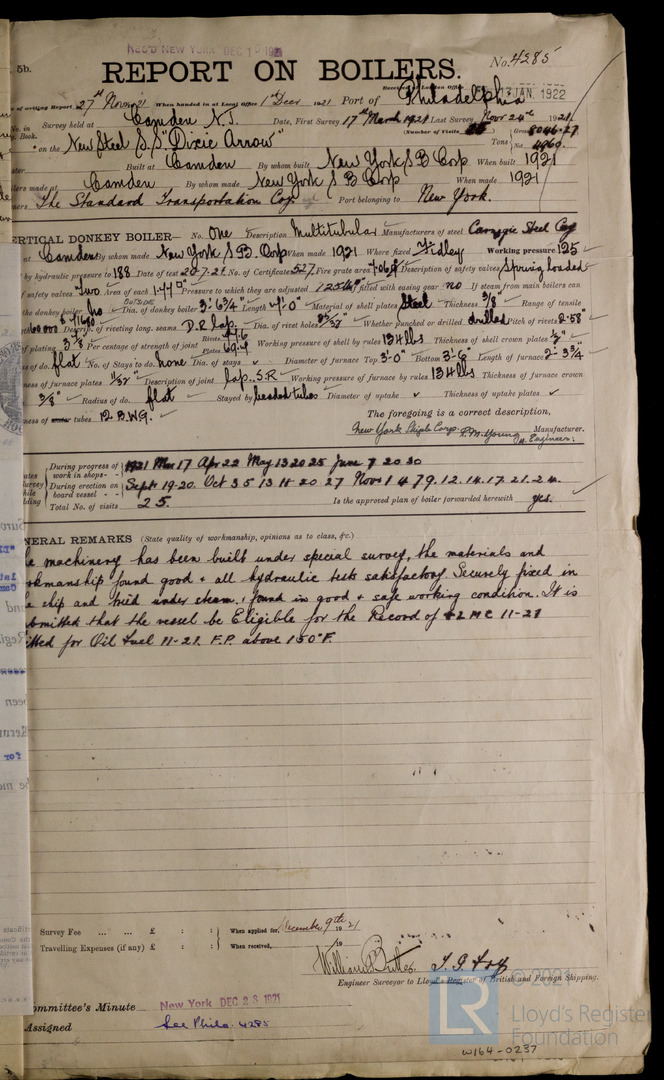 REC'D NEW YORK DEC 10 1921
5b.
No. 4285
REPORT ON BOILERS.
13 JAN. 1922
of writing Report 27th Novr 21 When handed in at Local Office 1st Decr 1921 Port of Philadelphia
Survey held at Camden N.J. Date, First Survey 17th March 1921 Last Survey Novr 24th 1921
Book. (Number of Visits 25
on the New Steel S.S. "Dixie Arrow" Tons Gross 8046.27
Net 4960.
Built at Camden By whom built New York S B Corp When built 1921
made at Camden By whom made New York S B Corp When made 1921
The Standard Transportation Coy Port belonging to New York.
ERTICAL DONKEY BOILER— No. One Description Multitubular Manufacturers of steel Carnegie Steel Coy
at Camden By whom made New York S B Corp When made 1921 Where fixed Fidley Working pressure 125
by hydraulic pressure to 188 Date of test 20-7-21 No. of Certificate 527 Fire grate area Description of safety valves Spring loaded
f safety valves Two Area of each 1.770" Pressure to which they are adjusted 125 lb If fitted with easing gear no If steam from main boilers can
the donkey boiler no Dia. of donkey boiler OUTSIDE 3'-6¾" Length Material of shell plates Steel Thickness 3/8" Range of tensile
60000 Descrip. of riveting long. seams D.R lap. Dia. of rivet holes Whether punched or drilled drilled Pitch of rivets 2.58"
of plating 3⅞ Per centage of strength of joint Rivets 77.6 Plates 69.4 Working pressure of shell by rules 134 lbs Thickness of shell crown plates ½"
s of do. flat No. of Stays to do. none Dia. of stays Diameter of furnace Top 3'-0" Bottom 3'-6" Length of furnace 2'-3¾"
ness of furnace plates 11/32" Description of joint lap. S.R Working pressure of furnace by rules 134 lbs Thickness of furnace crown
3/8" Radius of do. flat Stayed by beaded tubes Diameter of uptake Thickness of uptake plates
ness of tubes 12 B.W.G.
The foregoing is a correct description,
New York Ship Corp. Manufacturer.
Engineer.
During progress of work in shops - - 1921 Mar 17 Apr 22 May 13 20 25 June 7 20 30
During erection on board vessel - - Sept 19-20. Oct 3 5 13 18 20 27 Novr 1 4 7 9. 12. 14. 17. 21. 24.
Total No. of visits 25. Is the approved plan of boiler forwarded herewith yes.
NERAL REMARKS (State quality of workmanship, opinions as to class, &c.)
e machinery has been built under special survey, the materials and
rkmanship found good & all hydraulic tests satisfactory Securely fixed in
e ship and tried under steam. & found in good & safe working condition. It is
bmitted that the vessel be Eligible for the Record of LMC 11-21
itted for Oil Fuel 11-21. F.P. above 150°F.
Survey Fee ... ... £ : : When applied for, December 9th 1921
Travelling Expenses (if any) £ : : When received, 19
William Butler
Engineer Surveyor to Lloyd's Register of British and Foreign Shipping.
ommittee's Minute New York DEC 23 1921
Assigned See Phila. 4285
© 2021
LR
Lloyd's Register
Foundation
W164-0237